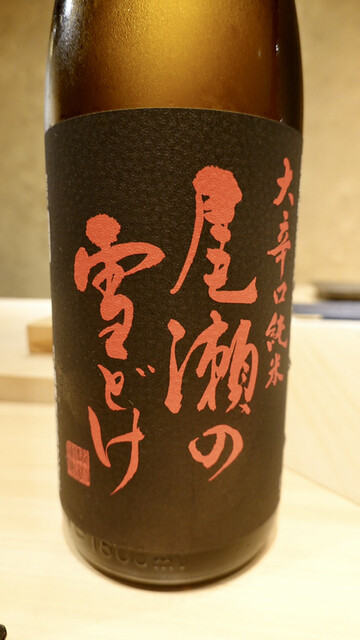 大辛口純米
尾瀬の
雪どけ
1800ml